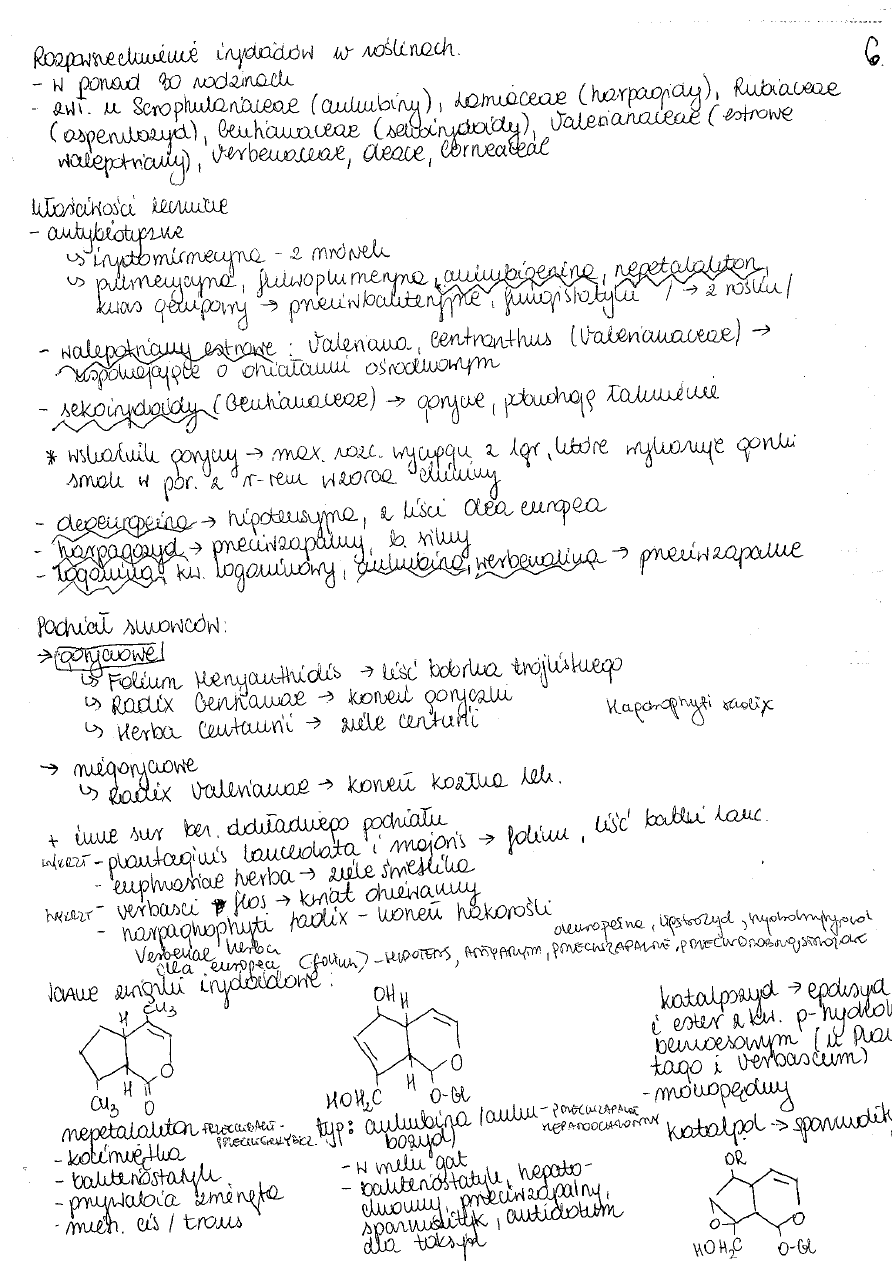 6.
Rozpowszechnienie irydoidów w roślinach.
- w ponad 30 rodzinach
- zwł. u Scrophulariaceae (aukubiny), Lamiaceae (harpagidy), Rubiaceae
(asperulozyd), Gentianaceae (sekoirydoidy), Valerianaceae (estrowe
walepotriany), Verbenaceae, Oleace, Corneaceae
Właściwości lecznicze
- antybiotyczne
↳ irydomirmecyna - z mrówek
↳ plumerycyna, fulwoplumeryna, aukubigenina, nepetalakton,
kwas genipowy → przeciwbakteryjne, fungistatyki / → z roślin /
- walepotriany estrowe : Valeriana, Centranthus (Valerianaceae) →
uspokajające o działaniu ośrodkowym
- sekoirydoidy (Gentianaceae) → gorycze, pobudzają łaknienie
* wskaźnik goryczy → max. rozc. wyciągu z 1gr, które wykazuje gorzki
smak w por. z r-rem wzorca chininy
- oleoeuropeina → hipotensyjna, z liści Olea europea
- harpagozyd → przeciwzapalny, b. silny
- loganina, kw. loganinowy, aukubina, werbenalina → przeciwzapalne
Podział surowców:
→ goryczowe
↳ Folium Menyanthidis → liść bobrka trójlistnego
↳ Radix Gentianae → korzeń goryczki
↳ Herba Centaurii → ziele centurii
Haparophyti radix
→ niegoryczowe
↳ Radix Valerianae → korzeń kozłka lek.
+ inne sur bez dokładnego podziału
- plantaginis lanceolata i majoris → folium, liść babki lanc.
- euphrasiae herba → ziele świetlika
- verbasci flos → kwiat dziewanny
- harpagophyti radix - korzeń hakorośli
Verbenae herba
oleuropeina,
Olea europea (folium) - HIPOTENS, ANTYARYTM, PRZECIWZAPALNE, PRZECIWDROBNOUSTROJOWE
Ważne związki irydoidowe :
CH₃
H
H
CH₃
O
OH
H
H
O
HOH₂C
O-Gl
katalpozyd → epoksyd
i ester z kw. p-hydro
benzoesowym (u Plan
tago i Verbascum)
- moczopędny
nepetalakton
- kocimiętka
- bakteriostatyk
- przywabia zwierzęta
- miesz. cis / trans
typ: aukubina /auku- PRZECIWZAPALNE
bozyd) HEPATOOCHRONNY
- w wielu gat
- bakteriostatyk, hepato-
chronny, przeciwzapalny,
spazmolityk, antidotum
dla toks. pl
katalpol → spazmolityk
OR
O
O
HOH₂C
O-Gl